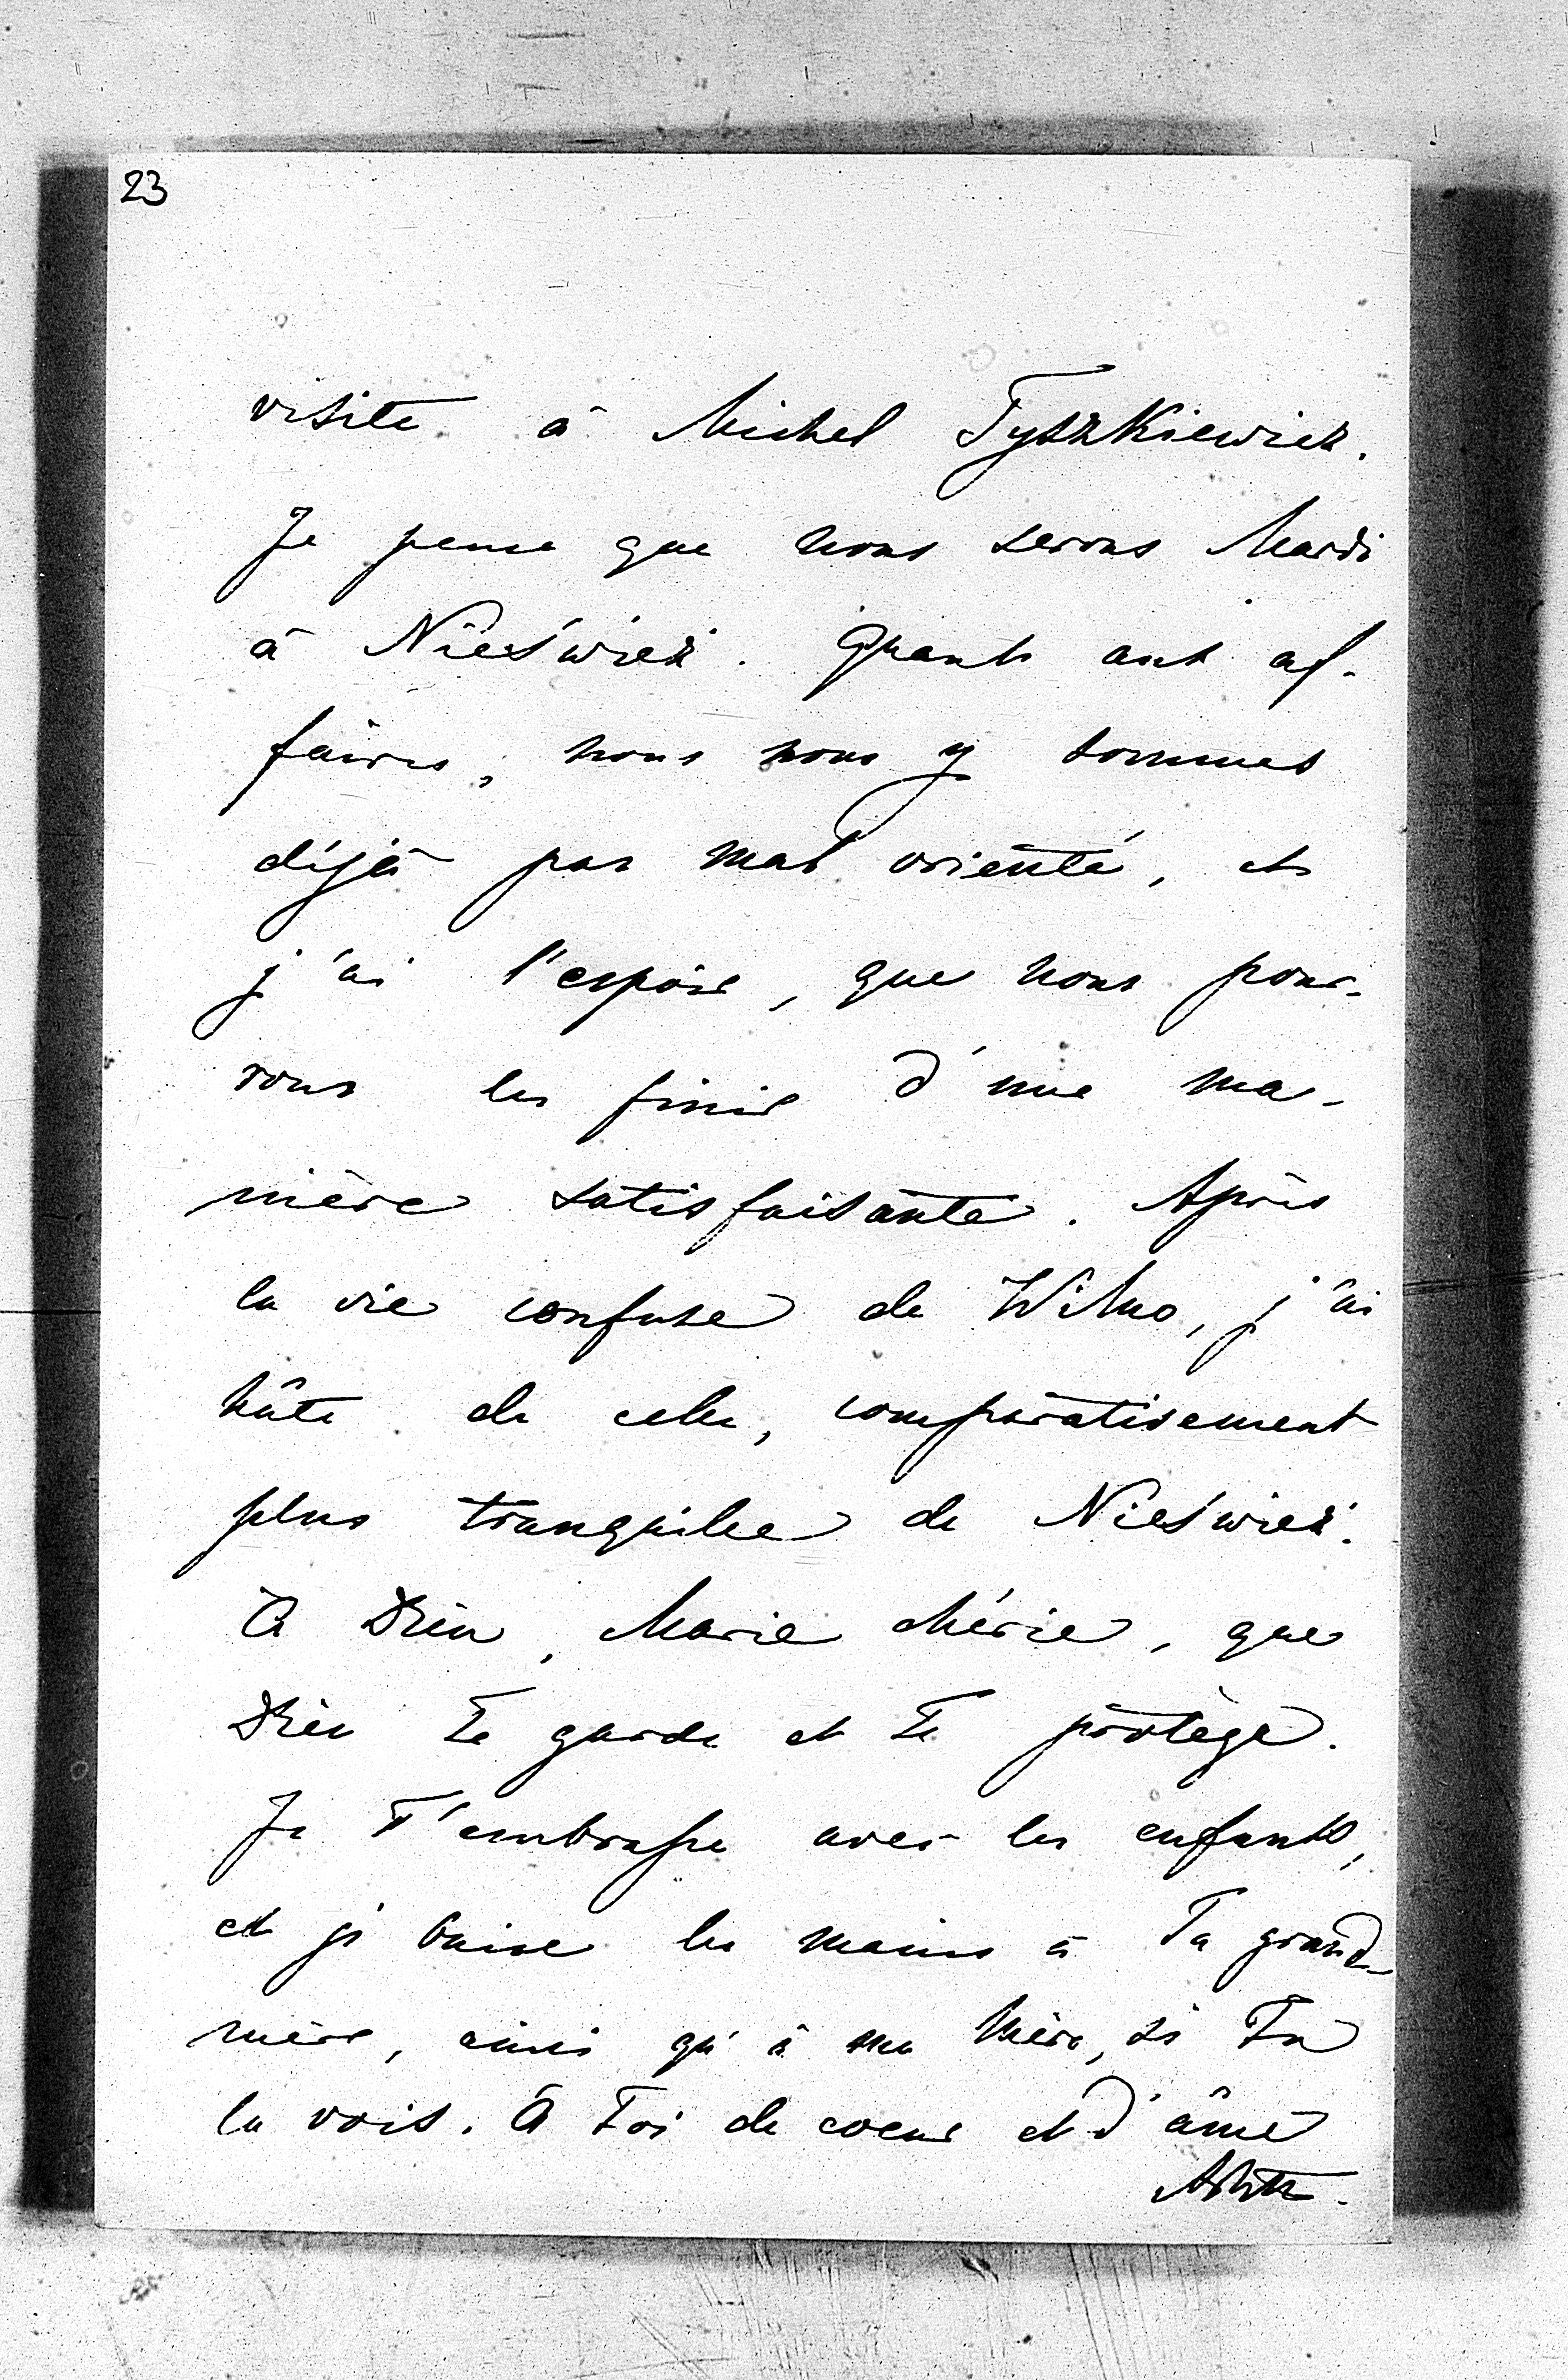 23
visite à Michel Tyszkiewicz.
Je pense que nous serons Mardi
à Nieśwież. Quant aux af-
faires, nous nous y sommes
déjà pas mal orienté, et
j'ai l'espoir, que nous pour-
rons les finir d'une ma-
nière satisfaisante. Après
la vie confuse de Wilno, j'ai
hâte de celle, comparativement
plus tranquille de Nieśwież.
À Dieu, Marie chérie, que
Dieu Te garde et Te protège.
Je T'embrasse avec les enfants,
et je baise les mains à Ta grand-
mère, ainsi qu'à ma Mère, si Tu
la vois. À Toi de coeur et d'âme